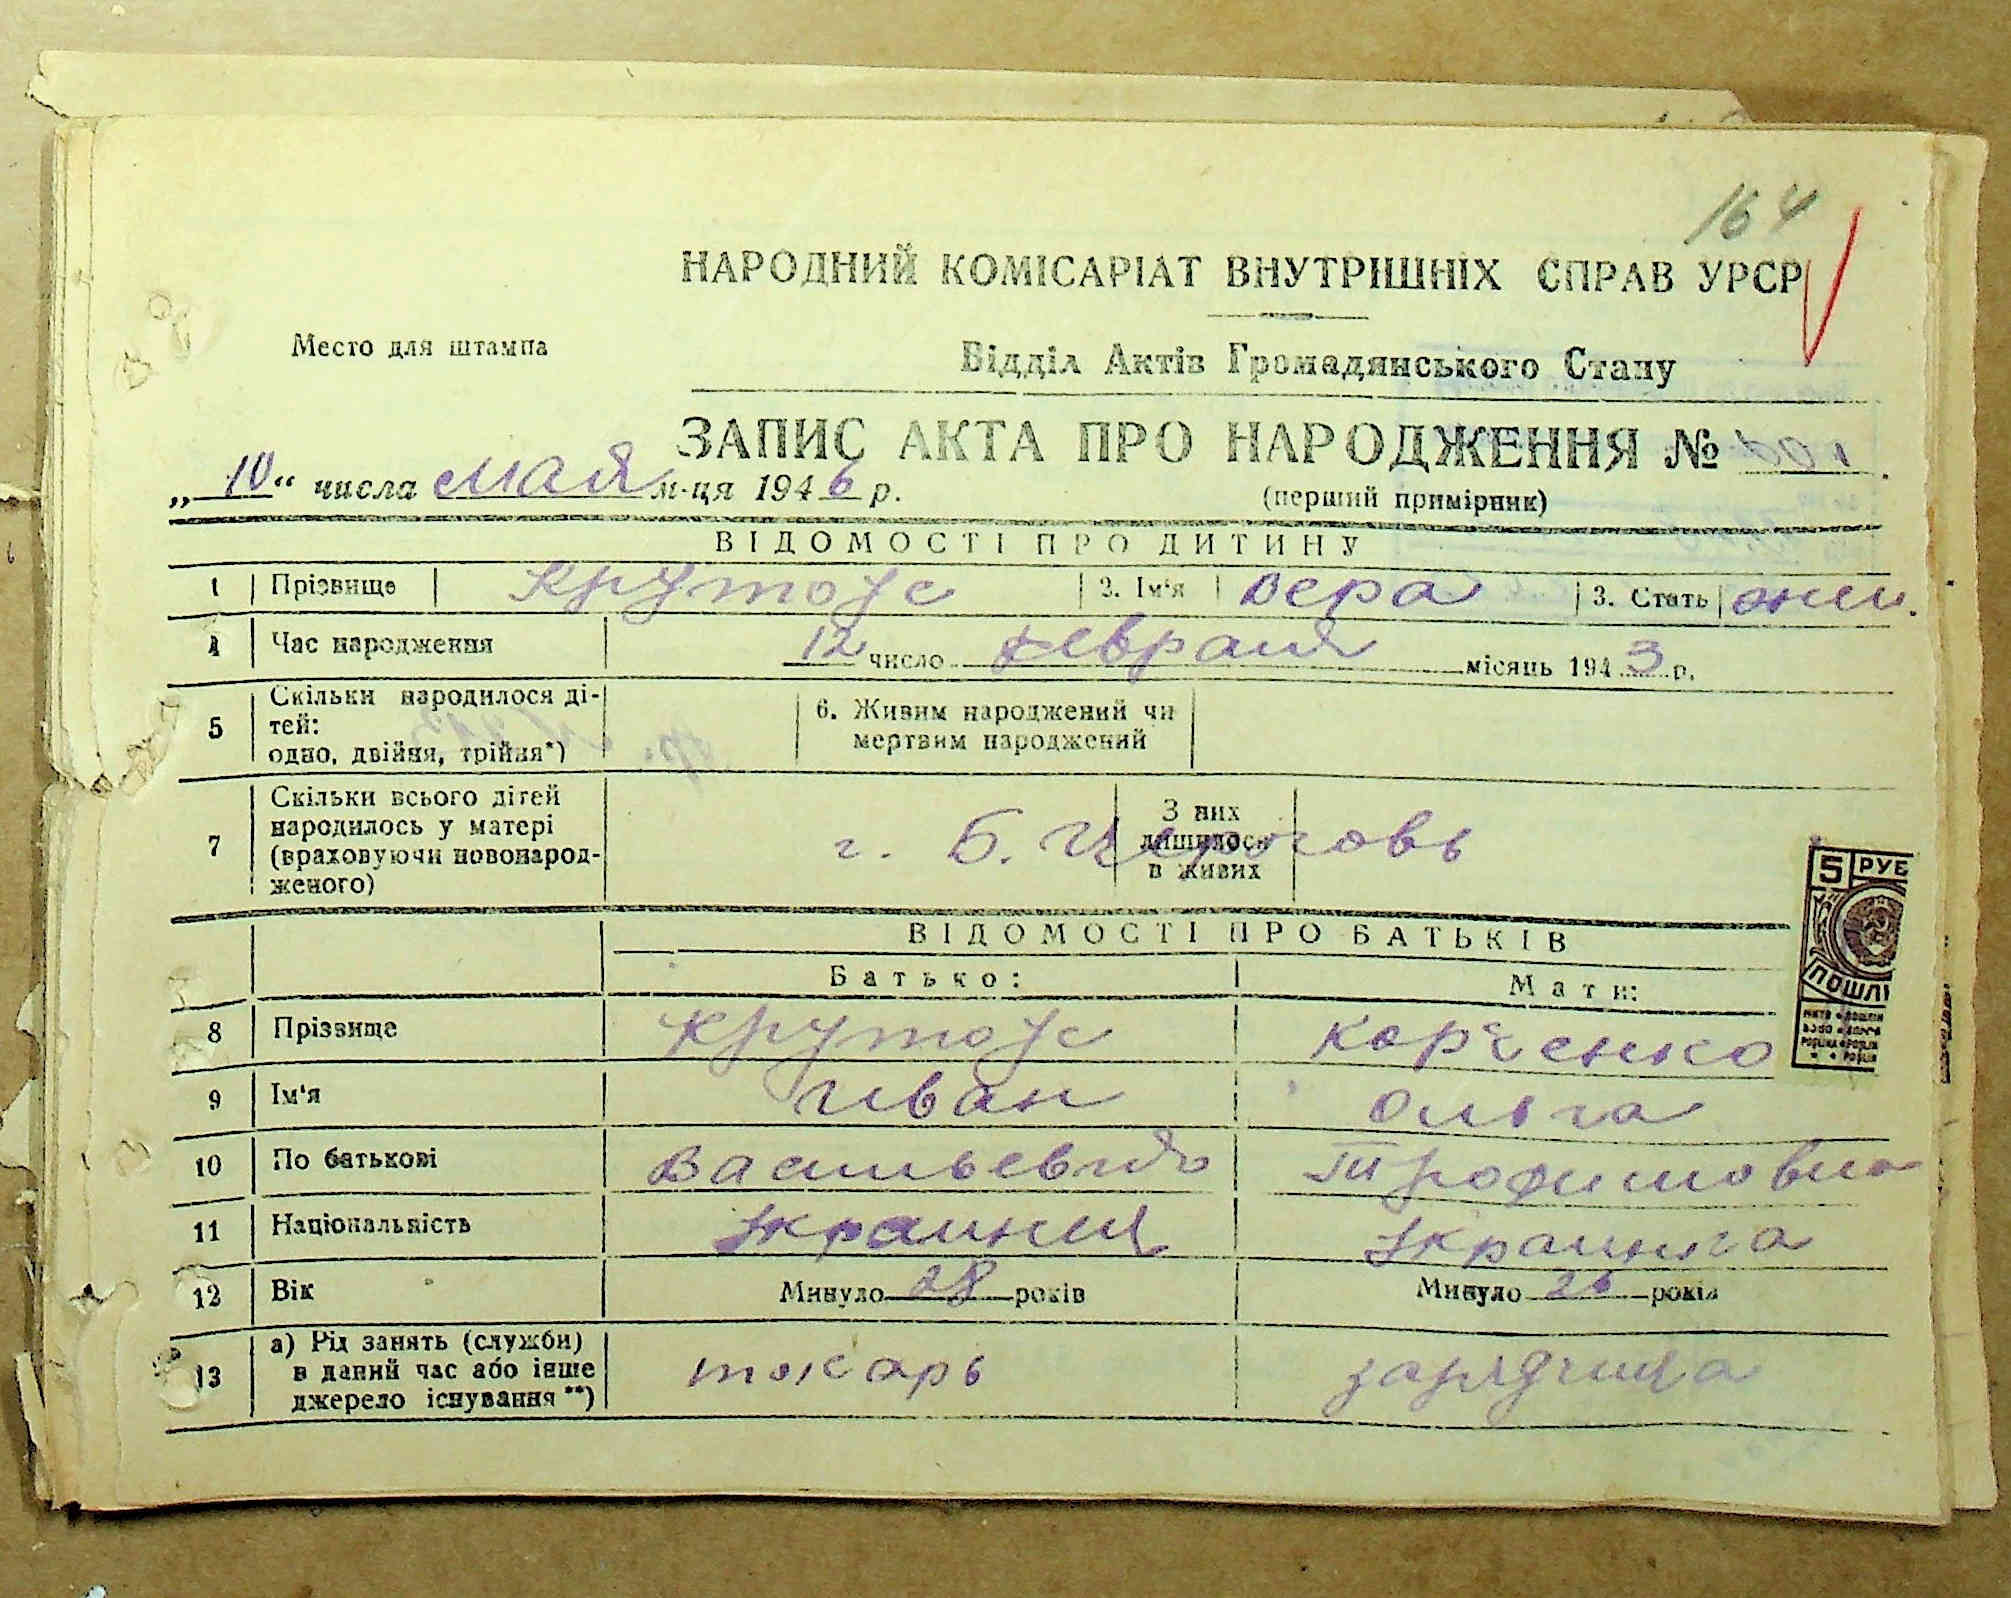 164
НАРОДНИЙ КОМІСАРІАТ ВНУТРІШНІХ СПРАВ УРСР
Место для штампа
Відділ Актів Громадянського Стану
ЗАПИС АКТА ПРО НАРОДЖЕННЯ №
„10“ числа мая м-ця 1946 р.
(перший примірник)
ВІДОМОСТІ ПРО ДИТИНУ
1 Прізвище Крутоус 2. Ім'я Вера 3. Стать жен.
4 Час народження 12 число февраля місяць 1943 р.
5 Скільки народилося ді-
тей:
одно, двійня, трійня*)
6. Живим народжений чи
мертвим народжений
7 Скільки всього дітей
народилось у матері
(враховуючи новонарод-
женого)
З них
лишилося
в живих
г. Б. Церковь
5 РУБ
ПОШЛ
ВІДОМОСТІ ПРО БАТЬКІВ
Батько: Мати:
8 Прізвище Крутоус Корченко
9 Ім'я Иван Ольга
10 По батькові Васильевич Трофимовна
11 Національність Украинец Украинка
12 Вік Минуло 28 років Минуло 26 років
13 а) Рід занять (служби)
в даний час або інше
джерело існування **)
токарь